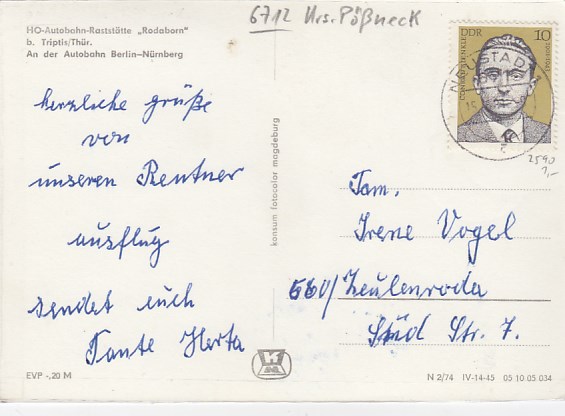 6712 Krs. Pößneck
HO-Autobahn-Raststätte „Rodaborn"
b. Triptis/Thür.
An der Autobahn Berlin-Nürnberg
DDR 10
NEUSTADT
2590
1,-
herzliche grüße
von
unseren Rentner
ausflug
sendet euch
Tante Herta
konsum fotocolor magdeburg
Fam.
Irene Vogel
Zeulenroda
Süd Str. 7.
EVP -,20 M
N 2/74 IV-14-45 05 10 05 034